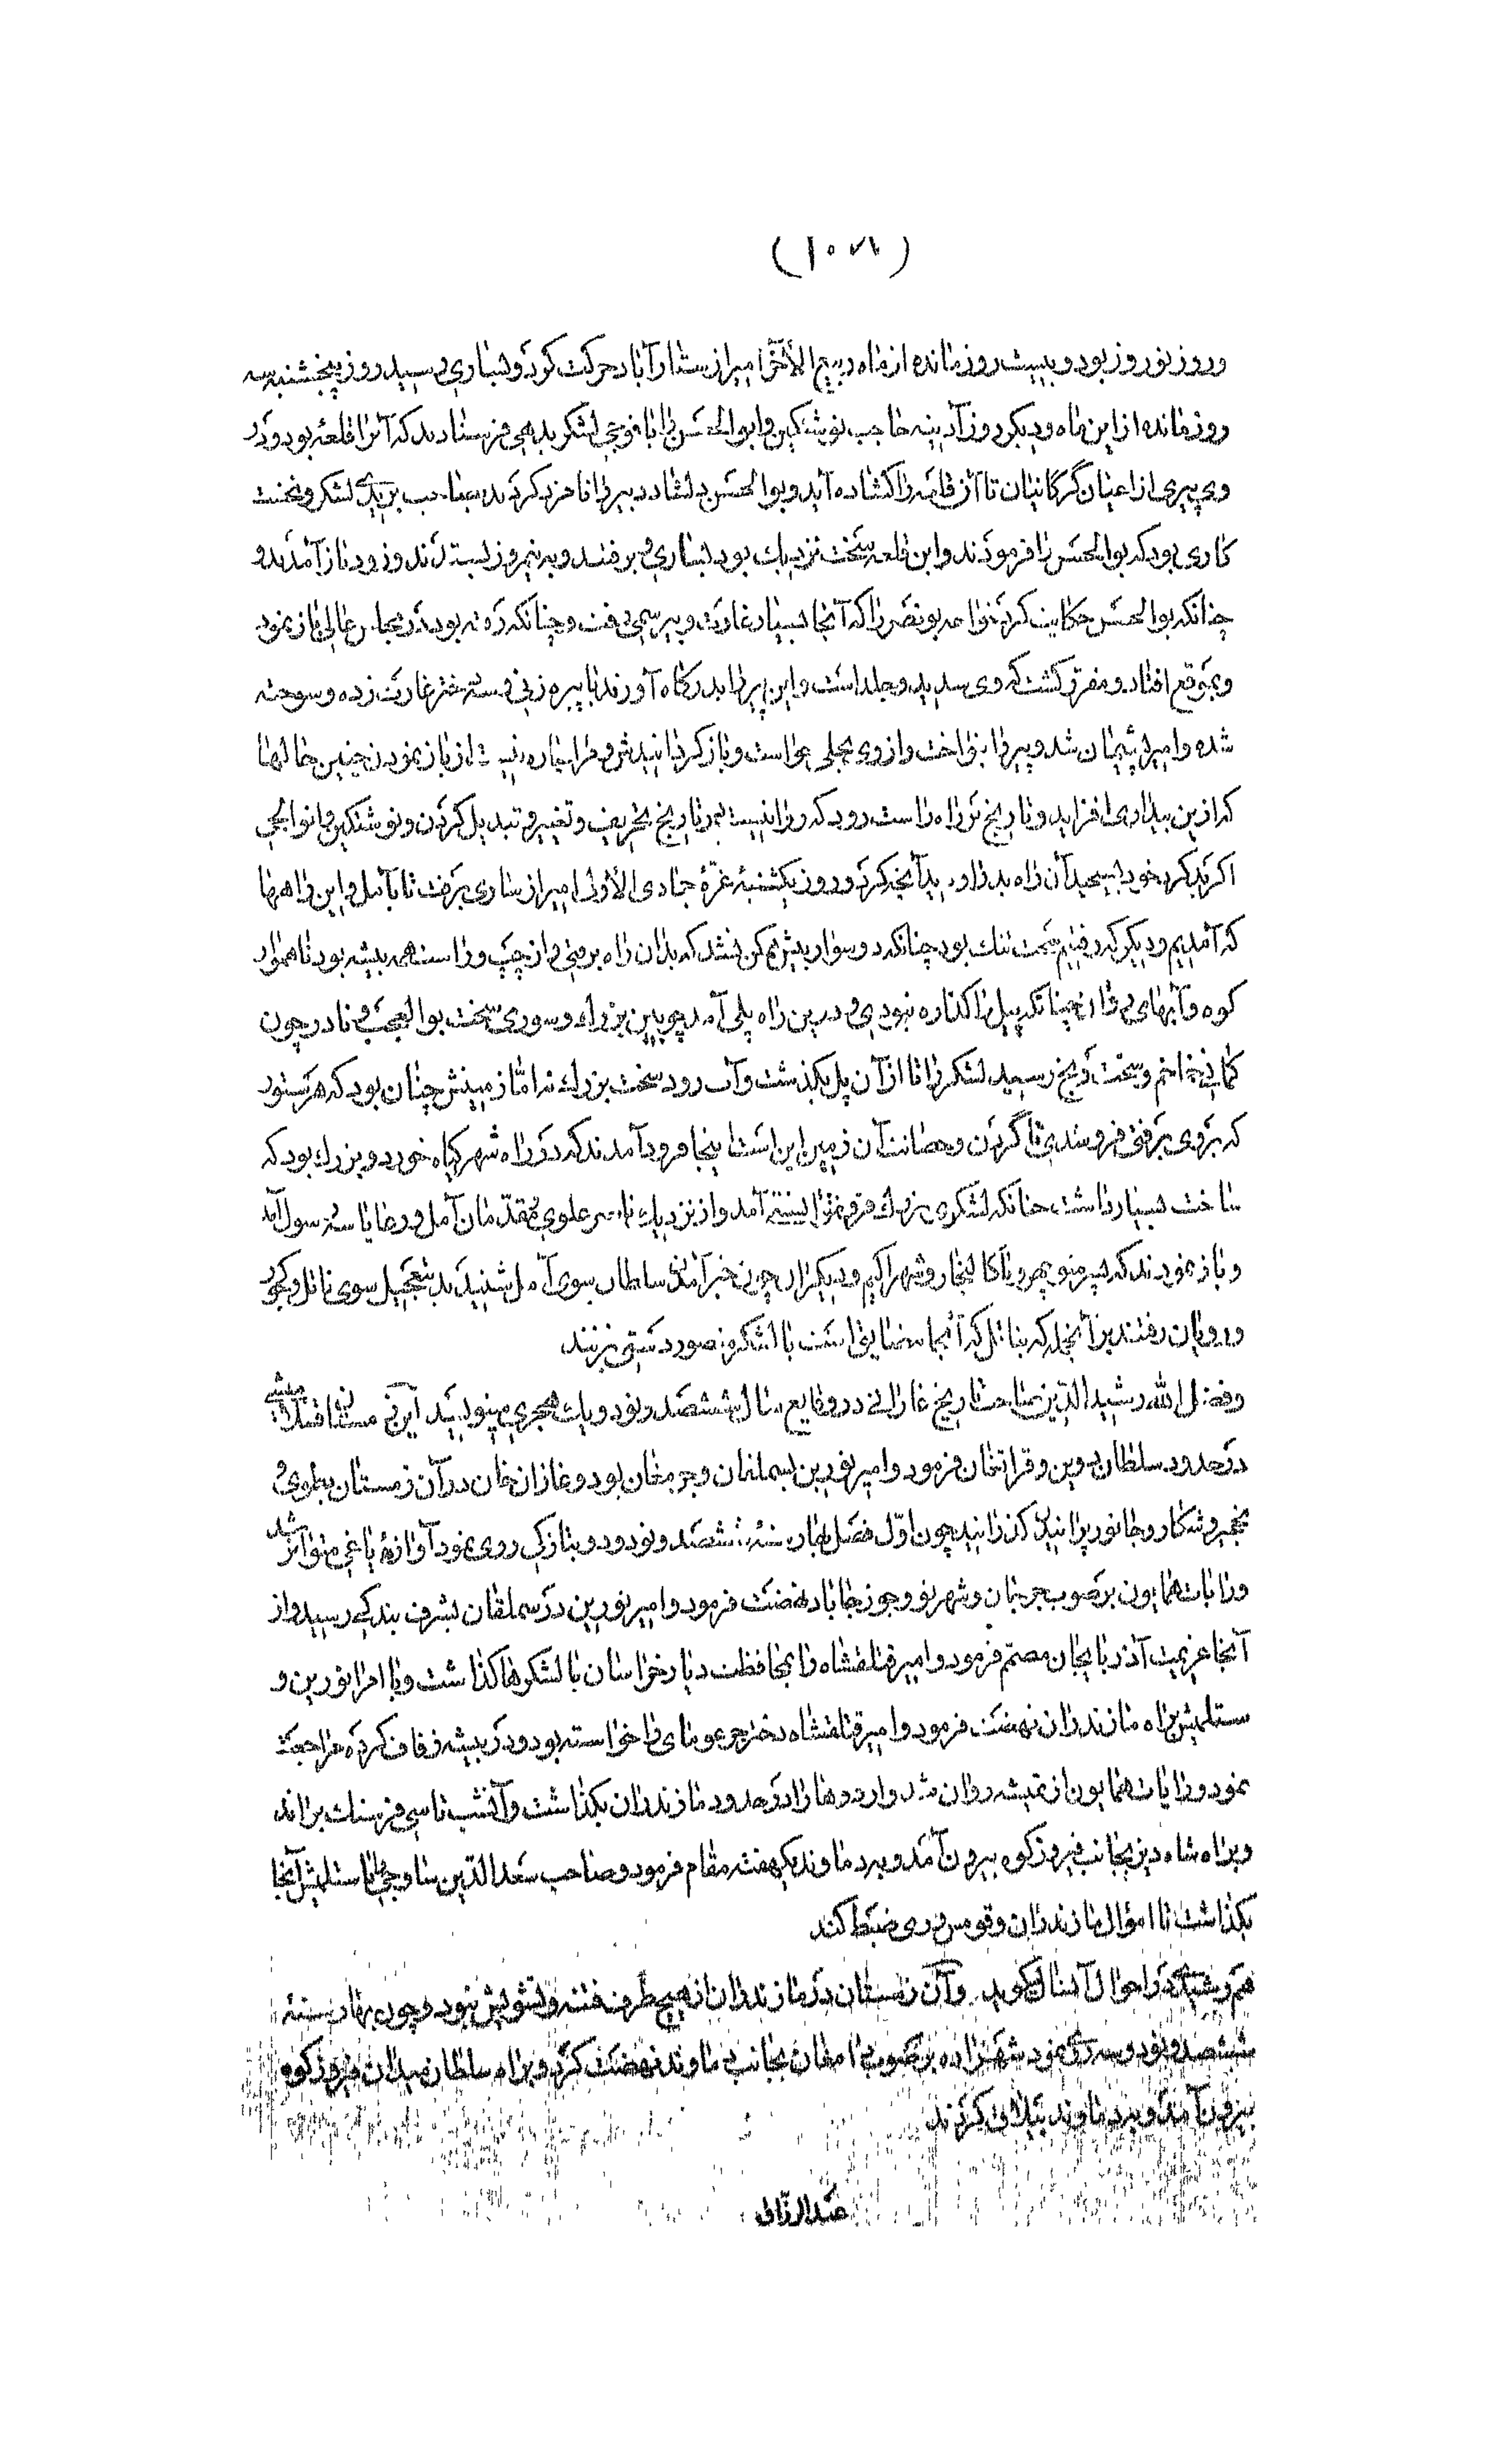 وروز نوروز بود و بیست روز مانده از ماه ربیع الآخر امیر از ستارآباد حرکت کرد و بساری رسید روز پنجشنبه سه
روز مانده از این ماه و دیگر روز آدینه حاجب نوشتکین و ابوالحسن را با فوجی لشکر بدیهی فرستادند که آنرا قلعه بود و در
وی پیری از اعیان گرگانیان تا آن قلعه را گشاده آید و بوالحسن دلشاد دبیر را نامزد کردند بصاحب بریدی لشکر و نخست
کاری بود که بوالحسن را فرمودند و این قلعه سخت نزدیک بود بساری و برفتند و به نیم روز بستدند و زود باز آمدند و
چنانکه بوالحسن حکایت کرد خواجه بونصر را که آنجا بسیار غارت و بیرسمی رفت و چنانکه رفته بود در مجلس عالی باز نمود
و بموقع افتاد و مقرر گشت که وی سدید و جلد است و این پیر را بدرگاه آوردند با پیره زنی و سه دختر غارت زده و سوخته
شده و امیر پشیمان شد و پیر را بنواخت و از وی بحلی خواست و باز گردانیدش و مرا چاره نیست از باز نمودن چنین حالها
که ازین بیداری افزاید و تاریخ بر راه راست رود که روا نیست در تاریخ تحریف و تغییر و تبدیل کردن و نوشتکین
اگر بد کرد خود بچشید آن راه بد را و و روز یکشنبه غره جمادی الاولی امیر از ساری برفت تا بآمل و این راهها
که آمدیم و دیگر که رفتیم سخت تنگ بود چنانکه دو سوار بیش ممکن نشد که بدان راه برفتی و از چپ و راست همه بیشه بود تا هموار
کوه و آبهای روان چنانکه پیل را گذاره نبودی و درین راه پلی آمد چوبین بزرگ و سوری سخت بوالعجب و نادر چون
کمانی خماخم و سخت رنج رسید لشکر را تا از آن پل بگذشت و آب رود سخت بزرگ نه اما زمینش چنان بود که هر ستور
که بر وی برفتی فرو شدی تا گردن و حصانت آن زمین این است اینجا فرود آمدند که در راه شهر گیاه خورد و بزرگ بود که
ساخت بسیار داشت چنانکه لشکری بزرگ فرو توانستی آمد و از نزدیک ناصر علوی و مقدمان آمل و رعایا سه رسول آمد
و باز نمودند که پسر منوچهر و باکالیجار و شهراکیم و دیگران چون خبر آمدن سلطان سوی آمل شنیدند بتعجیل سوی ناتل و کجور
و رویان رفتند بر آنجمله که بناتل که آنجا مضایق است با لشکر منصور دستی بزنند
و فضل الله رشید الدین صاحب تاریخ غازانی در وقایع سال ششصد و نود و یک هجری مینویسد آن زمستان قشلامیشی
در حدود سلطان دوین و قراتغان فرمود و امیر نورین بسملقان و جرمغان بود و غازان خان در آن زمستان بباوری و
نخجیر و شکار و جانور پرانیدن گذرانید چون اول فصل بهار سنه ششصد و نود و دو بتازگی روی نمود آوازه یاغی متواتر شد
و رایات همایون بر صوب جرجان و شهر نو و جورجاباد نهضت فرمود و امیر نورین در سملقان بشرف بندگی رسید و از
آنجا عزیمت آذربایجان مصمم فرمود و امیر قتلغشاه را بمحافظت دیار خراسان با لشکرها گذاشت و با امرا نورین و
ستلمیش براه مازندران نهضت فرمود و امیر قتلغشاه دختر را خواسته بود و در تمیشه زفاف کرده مراجعت
نمود و رایات همایون از تمیشه روان شد و اردوها را در حدود مازندران بگذاشت و آنشب تا سی فرسنگ براند
و براه شاه دز بجانب فیروزکوه بیرون آمد و بدماوند یکهفته مقام فرمود و صاحب سعد الدین ساوجی را با ستلمیش آنجا
بگذاشت تا اموال مازندران و قومس و ری ضبط کند
هم رشید در احوال آنسال گوید و آن زمستان در مازندران از هیچ طرف فتنه و تشویش نبود و چون بهار سنه
ششصد و نود و سه روی نمود شهزاده بر صوب دامغان بجانب دماوند نهضت کرد و براه سلطان میدان و فیروزکوه
بیرون آمد و بدماوند ییلاق کردند
عبدالرزاق